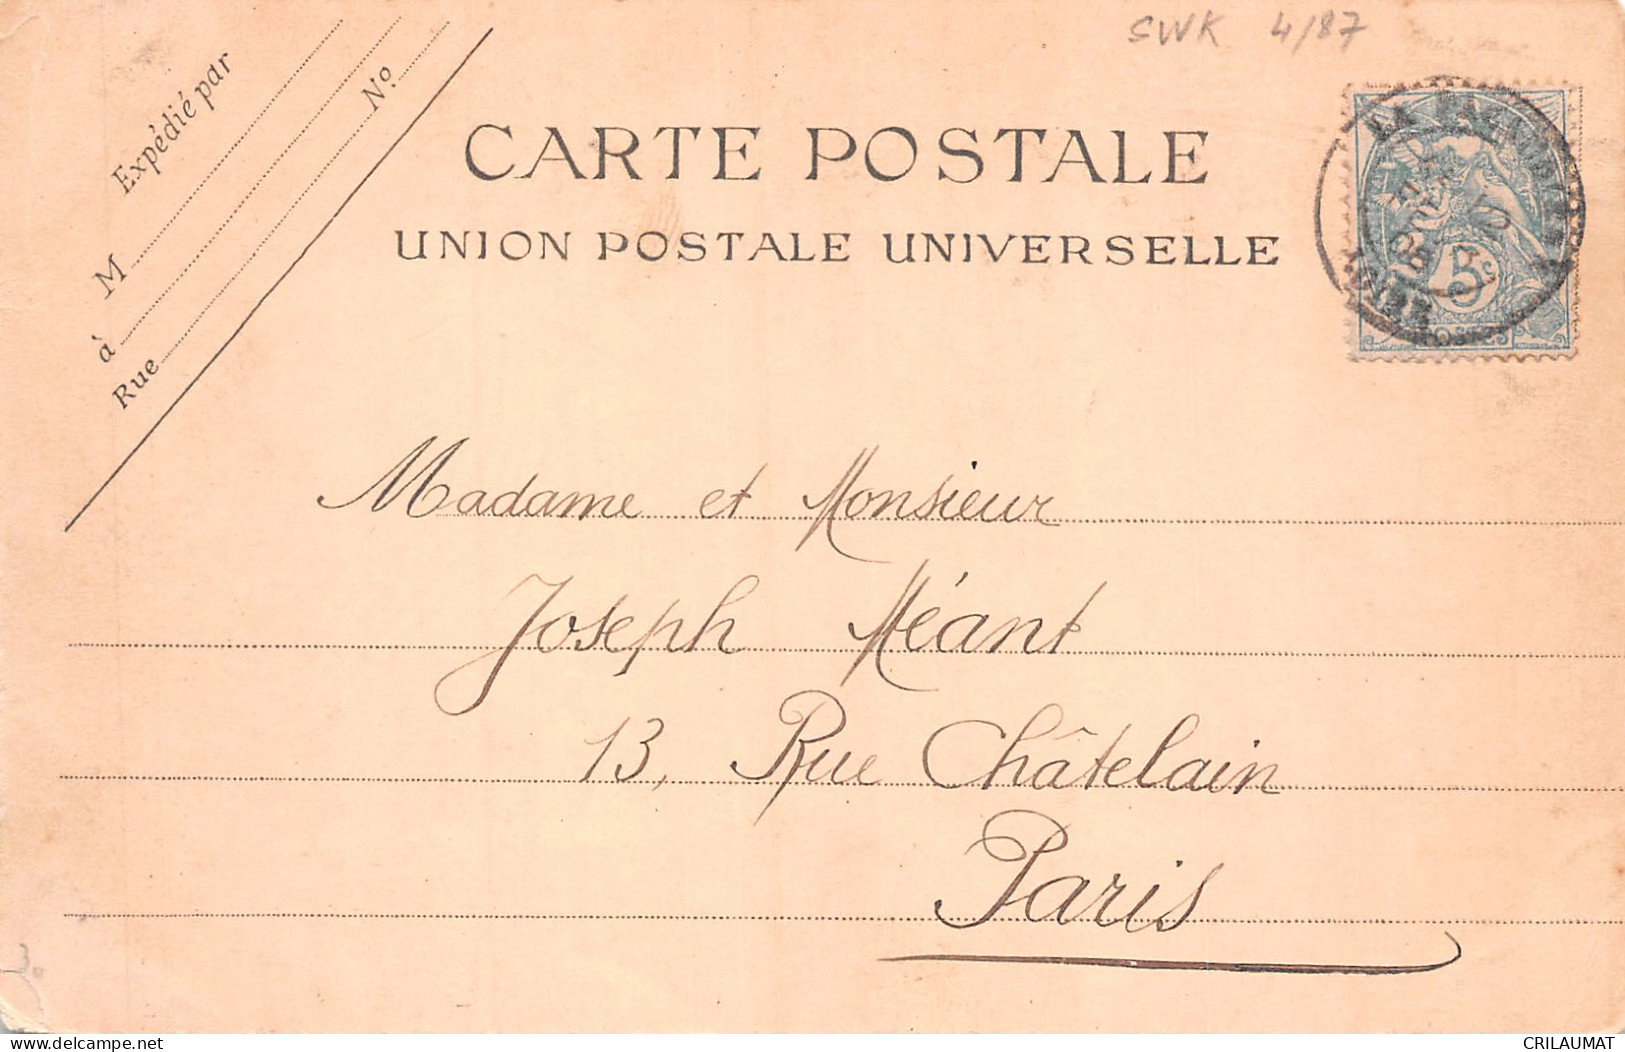 SWK 4/87
Expédié par
M
à
Rue Nº
CARTE POSTALE
UNION POSTALE UNIVERSELLE
5c
Madame et Monsieur
Joseph Méant
13, Rue Châtelain
Paris
30
CRILAUMAT
delcampe.net